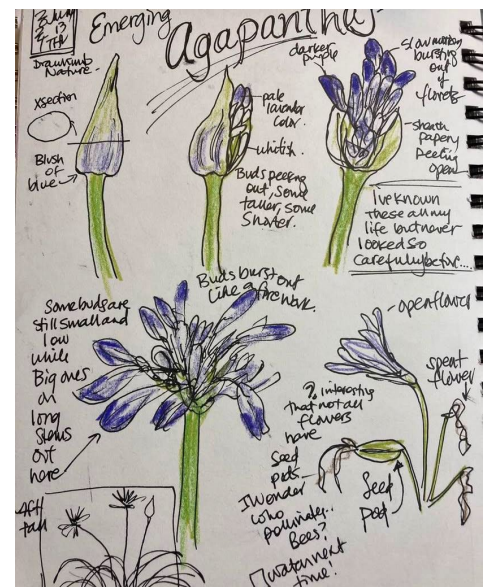 Emerging
Agapanthas
13
Drawing
Nature -
xsection
Blush
of
blue
pale
lavender
color.
whitish.
Buds peeping
out, some
taller, some
shorter.
darker
purple
Slow motion
bursting
out
of
florets
sheath
papery
peeling
open
I've known
these all my
life but never
looked so
carefully before....
Buds burst out
like a firework.
Some buds are
still small and
low
while
Big ones
on
long
stems
out
here
4ft
tall
open flower
spent
flower
? interesting
that not all
flowers
have
seed
pods
I wonder
who
pollinates..
Bees?
watch next
time!
Seed
pod